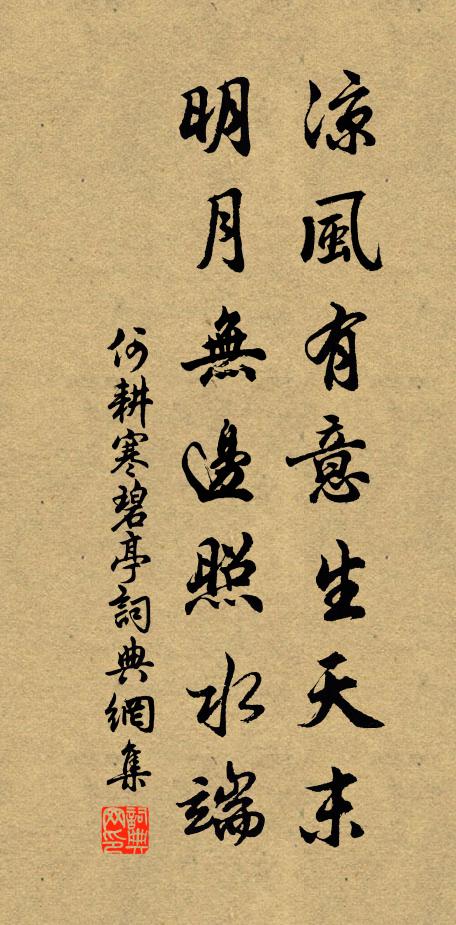 涼風有意生天末
明月無邊照水端
何耕寒碧亭詞典網集
詞典网印